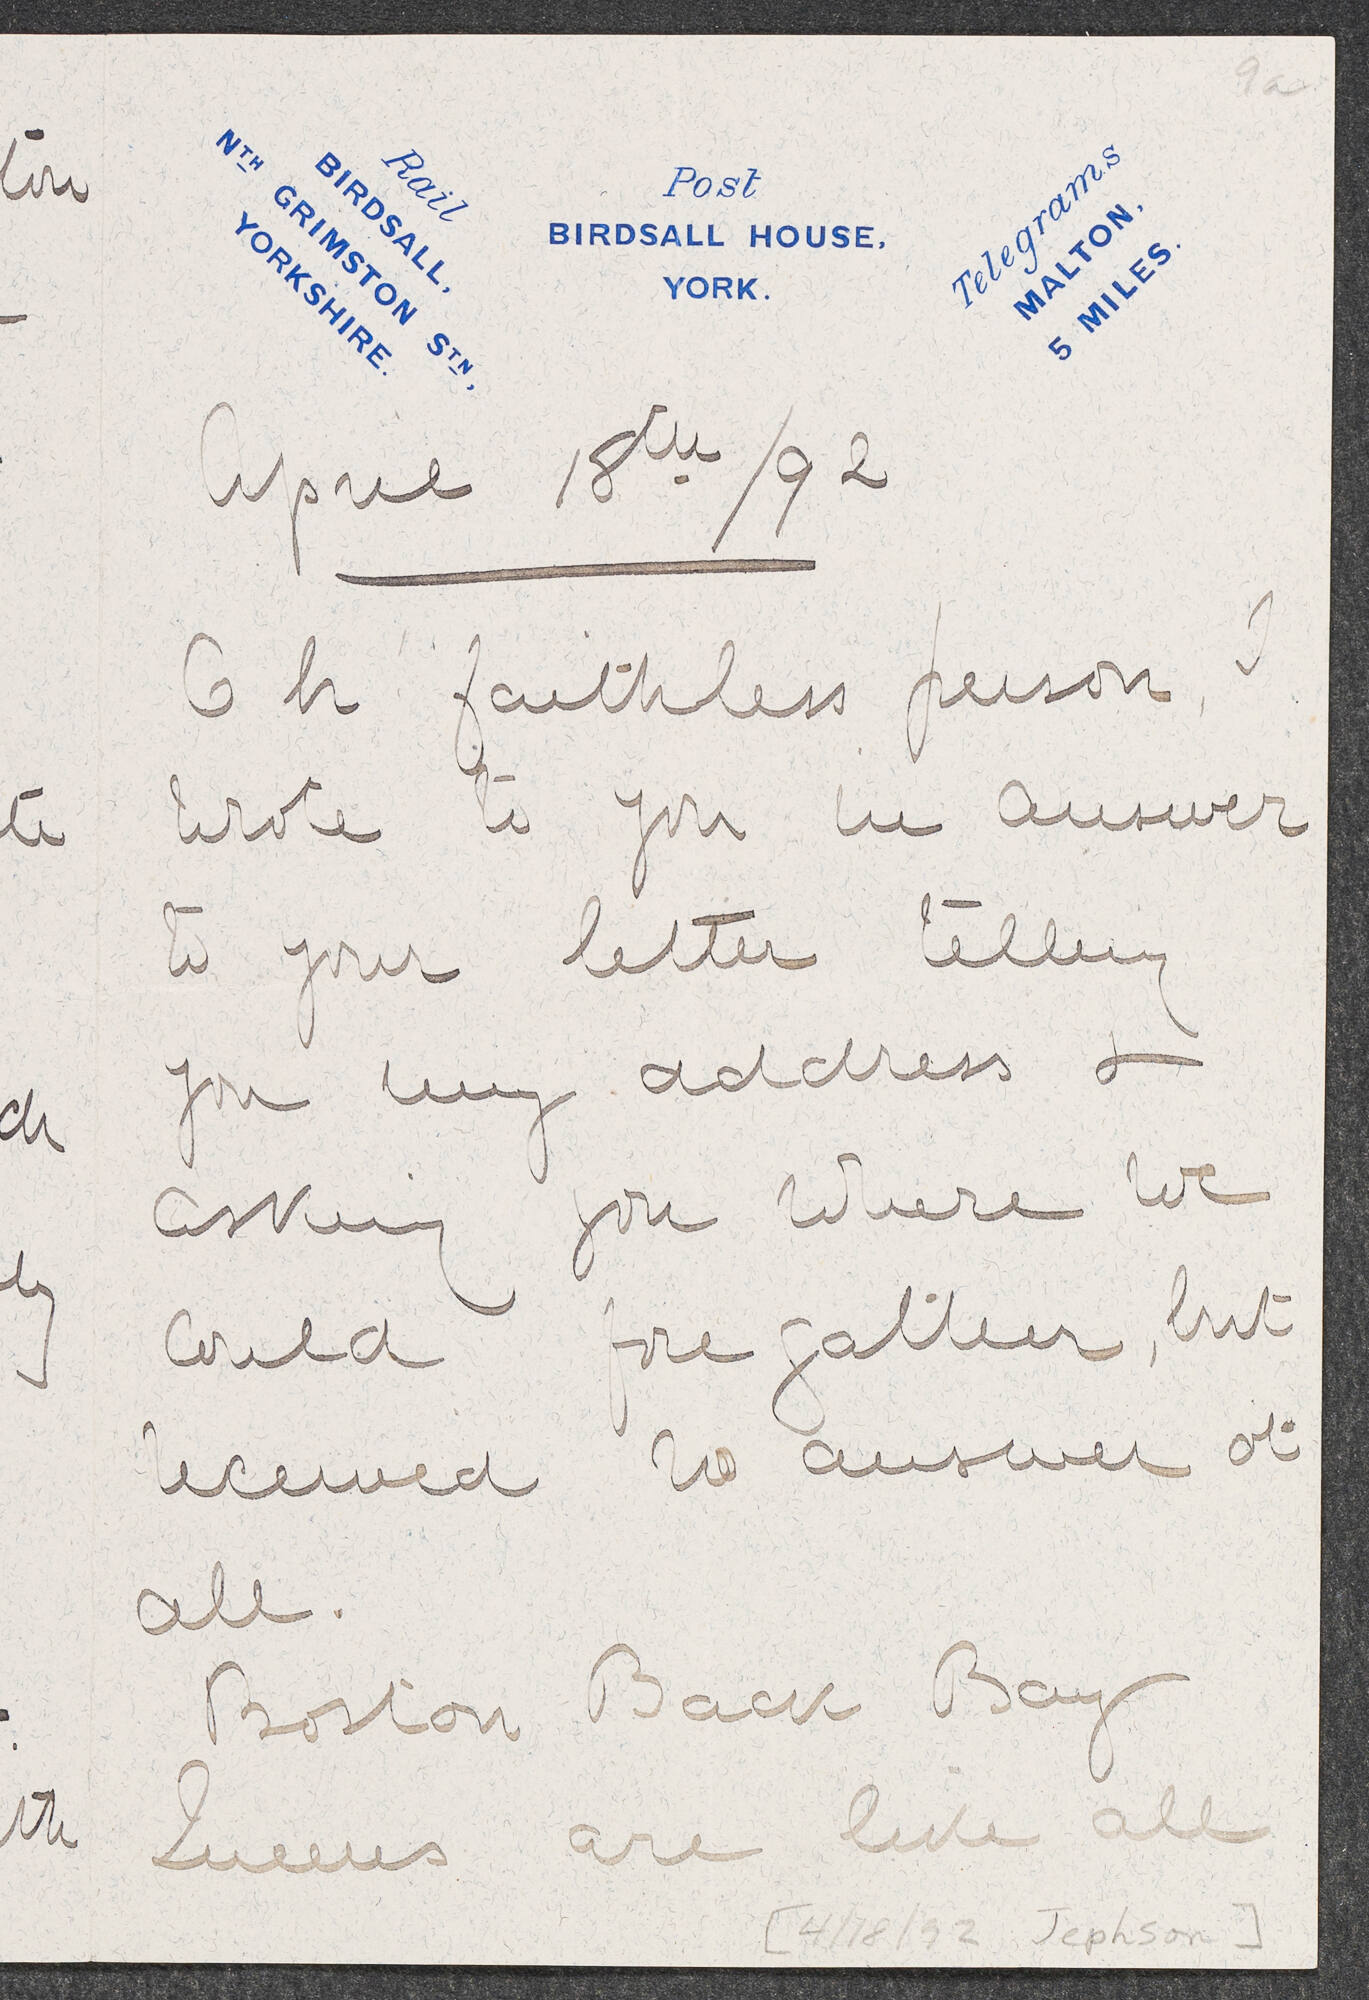 9a
Rail
BIRDSALL,
NTH GRIMSTON STN,
YORKSHIRE.
Post
BIRDSALL HOUSE,
YORK.
Telegrams
MALTON,
5 MILES.
April 18th /92
Oh faithless person, I
wrote to you in answer
to your letter telling
you my address &
asking you where we
could fore gather, but
received no answer at
all.
Boston Back Bay
Queens are like all
[4/18/92 Jephson]